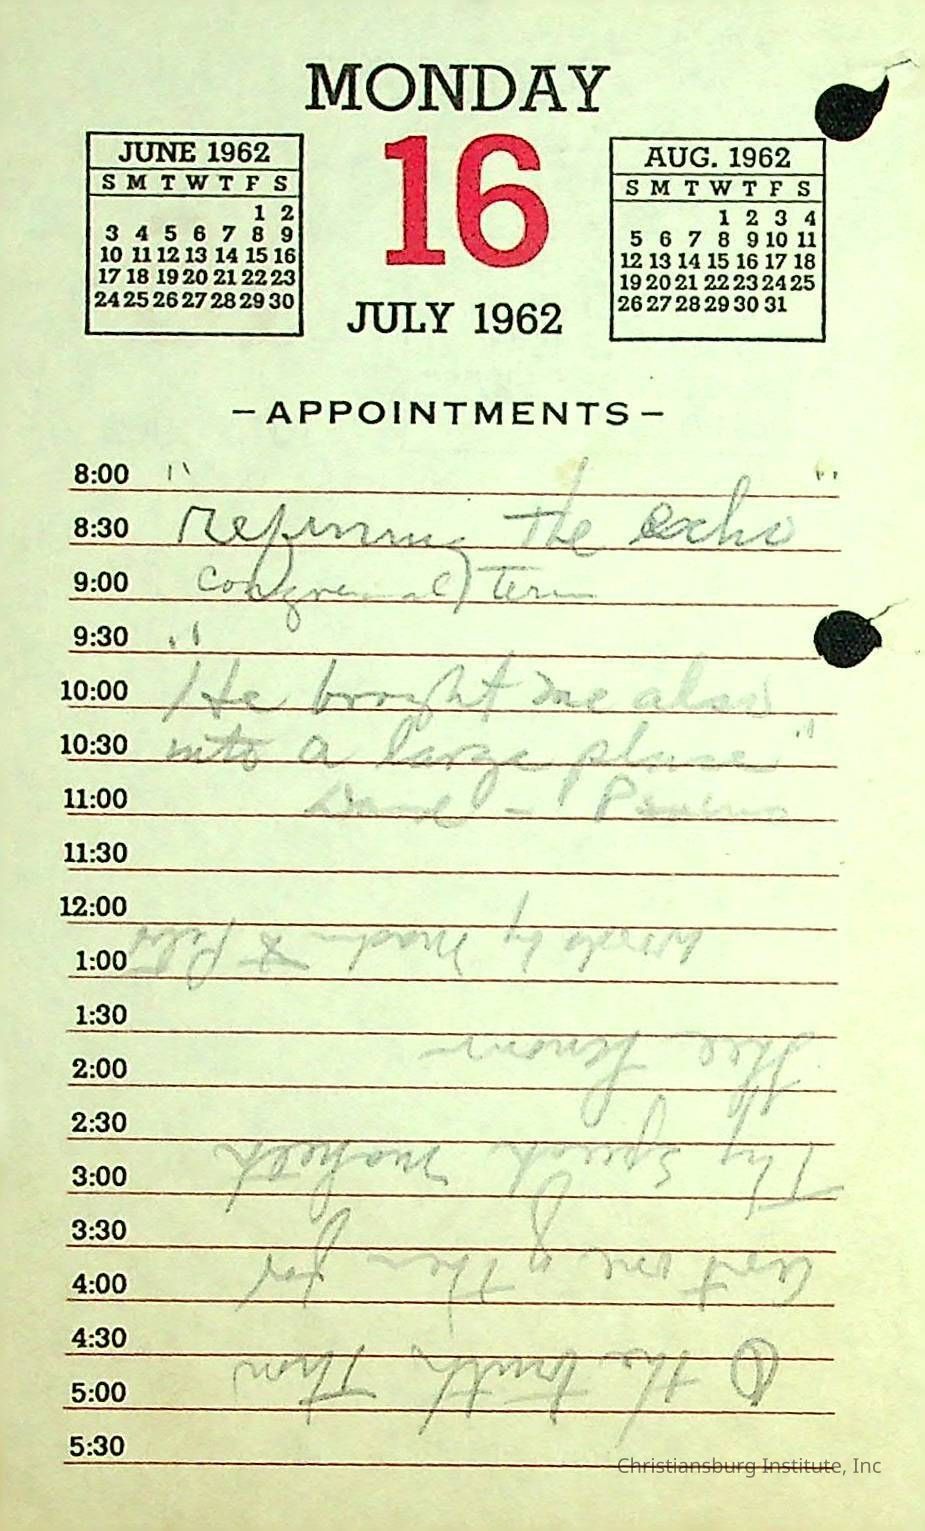 MONDAY
16
JULY 1962
JUNE 1962
S M T W T F S
1 2
3 4 5 6 7 8 9
10 11 12 13 14 15 16
17 18 19 20 21 22 23
24 25 26 27 28 29 30
AUG. 1962
S M T W T F S
1 2 3 4
5 6 7 8 9 10 11
12 13 14 15 16 17 18
19 20 21 22 23 24 25
26 27 28 29 30 31
- APPOINTMENTS -
8:00 "
8:30 the echo"
9:00 term
9:30
10:00 "He brought me also
10:30 into a large place"
11:00
11:30
12:00
1:00
1:30
2:00
2:30
3:00
3:30
4:00
4:30
5:00
5:30
① the truth Thou
art one of them for
Thy speech
thee
words by
Christiansburg Institute, Inc